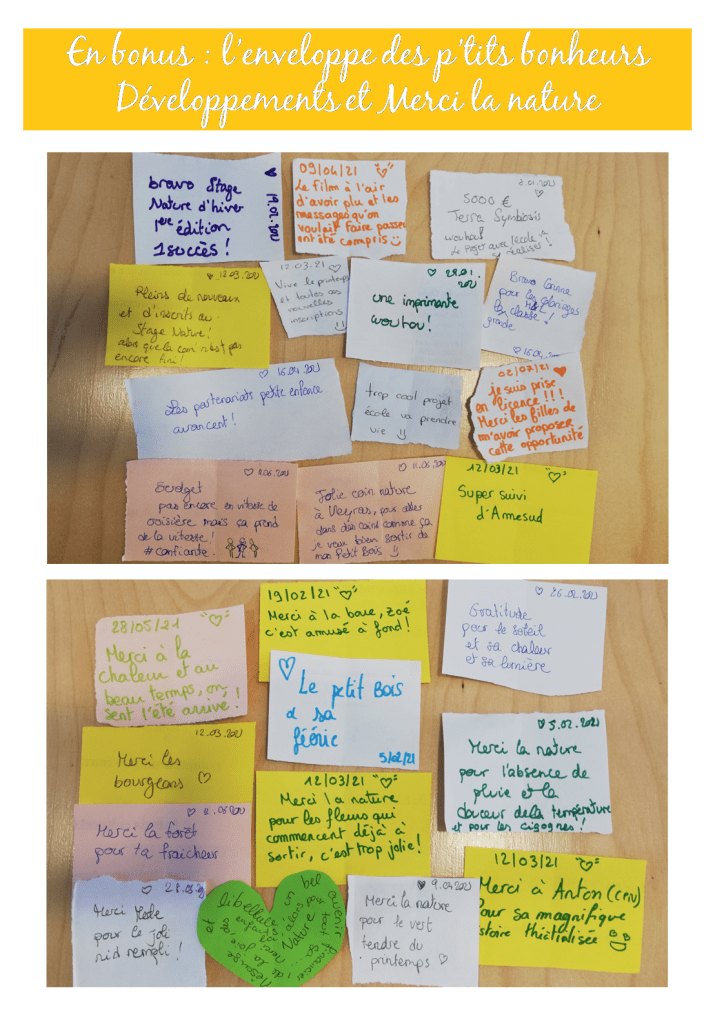 En bonus : l'enveloppe des p'tits bonheurs
Développements et Merci la nature
bravo Stage
Nature d'hiver
1ère édition
1 succès !
19.02.2021
09/04/21
Le film à l'air
d'avoir plu et les
messages qu'on
voulait faire passer
ont été compris
8.01.2021
5000 €
Terra Symbiosis
wouhou!
Le projet avec l'école
se réalise!
12.03.2021
Pleins de nouveaux
et d'inscrits au
Stage Nature!
alors que la com n'est pas
encore fini!
12.03.21
Vive le printemps
et toutes ces
nouvelles
inscriptions
28.01.
2021
une imprimante
wouhou!
Bravo Corinne
pour les coloriages
la classe!
grade
16.04.
16.04.2021
Les partenariats petite enfance
avancent!
trop cool projet
école va prendre
vie
02/07/21
je suis prise
en licence !!!
Merci les filles de
m'avoir proposer
cette opportunité
11.06.2021
Budget
pas encore en vitesse de
croisière mais ça prend
de la vitesse!
#confiante!
11.06.2021
Jolie coin nature
à Veyras, pour aller
dans des coins comme ça
je veux bien sortir de
mon Petit Bois
12/03/21
Super suivi
d'Annesud
28/05/21
Merci à la
chaleur et au
beau temps, on
sent l'été arrivé !
19/02/21
Merci à la boue, Zoé
c'est amusé à fond!
26.02.2021
Gratitude
pour le soleil
et sa chaleur
et sa lumière
Le petit Bois
& sa
féérie
5/02/21
12.03.2021
Merci les
bourgeons
5.02.2021
Merci la nature
pour l'absence de
pluie et la
douceur de la température
et pour les cigognes!
12/03/21
Merci la nature
pour les fleurs qui
commencent déjà à
sortir, c'est trop jolie!
11.06.2021
Merci la forêt
pour ta fraicheur
28.05.2
Merci
pour le joli
nid rempli !
un bel
avenir financier
Nature
libellule
des enfants
et
Mésange
Merci la
joie
9.04.2021
Merci la nature
pour le vert
tendre du
printemps
12/03/21
Merci à Anton (CPN)
pour sa magnifique
histoire théâtralisée